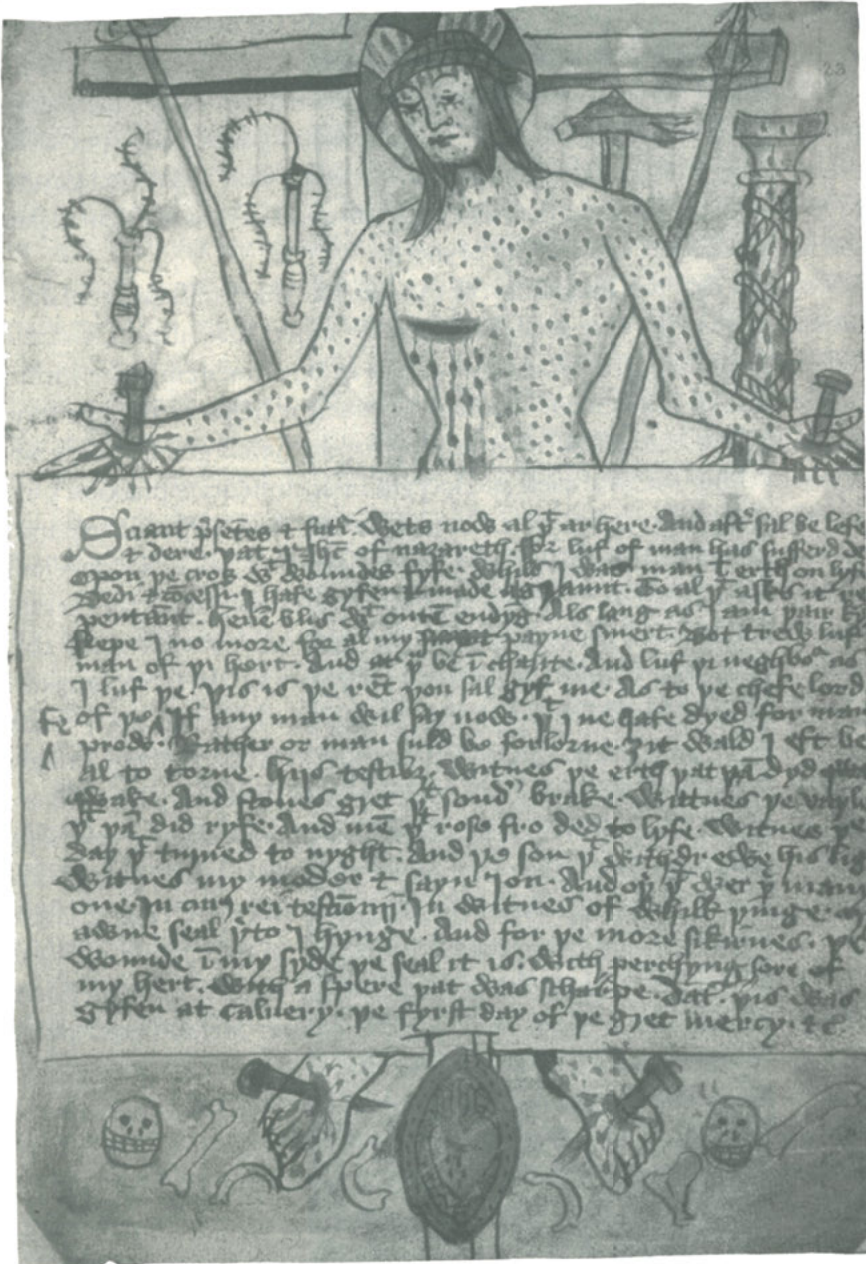 23
Sciant p̄sētes & futͬ. Wets now al yͭ ar here. And aftͬ sal be lefe
& dere. yat I ihc̄ of nazareth. ffor luf of man has sufferd
Opon ye cros wͭ woundes fyfe. Whils I was man ī erth on lyf
Dedi & cōcessi. I hafe gyfen & made a graunt. To al yͭ asks it re
pentant. heuē blis wͭ outē endyg̅. Als lang as I am yair
Kepe I no more for al my payne smert. Bot trew luf
man of yi hert. And at yͧ be ī charite. And luf yi neghboͬ as
I luf ye. yis is ye rēt you sal gyf me. As to ye chefe lord
of ye fe If any man wil say now. yͭ I ne hafe dyed for man
prow. Rather or man suld be forlorne. ȝit wald I eft be
al to torne. hijs testibꝫ. Witnes ye erth yat yā dyd
qwake. And stones gret yͭ sondͬ brake. Wittnes ye vayl
yͭ yā did ryfe. And mē yͭ rose fro ded to lyfe. Witnes ye
day yͭ turned to nyght. And ye son yͭ withdrewe his
Witnes my moder & sayn Ion. And oyͬ yͭ wer yͬ many
one. In cuiꝰ rei testīōnij. In witnes of whilk yinge.
awne seal yͬto I hynge. And for ye more sikirnes. ye
wounde ī my syde ye seal it is. With perchyng sore of
my hert. With a spere yat was scharpe. Dat. yis was
gyfen at caluery. ye fyrst day of ye gret mercy. &c̄